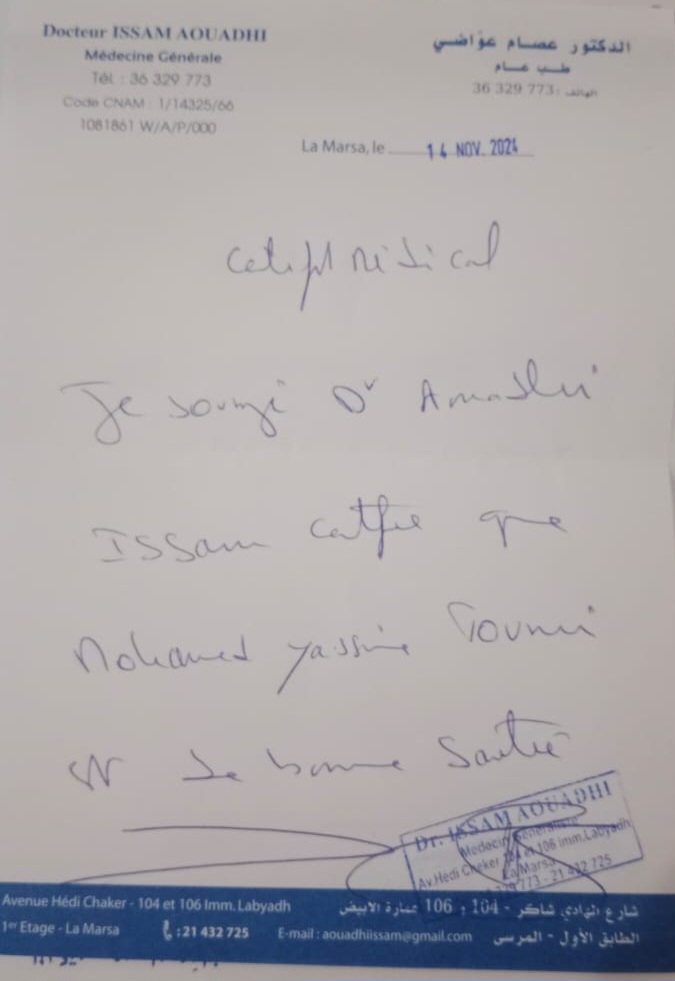 Docteur ISSAM AOUADHI
Médecine Générale
Tél : 36 329 773
Code CNAM : 1/14325/66
1081861 W/A/P/000
الدكتور عصام عوّاضي
طب عام
الهاتف : 36 329 773
La Marsa, le 14 NOV. 2024
Certifict Médical
Je soussigné Dr Aouadhi
Issam certifie que
Mohamed Yassine Tounsi
est de bonne Santé
Dr. ISSAM AOUADHI
Médecine Générale
Av. Hédi Chaker 104 et 106 Imm. Labyadh
La Marsa
329 773 - 21 432 725
Avenue Hédi Chaker - 104 et 106 Imm. Labyadh
1er Etage - La Marsa
: 21 432 725
E-mail : aouadhiissam@gmail.com
شارع الهادي شاكر - 104 و 106 عمارة الابيض
الطابق الأول - المرسى